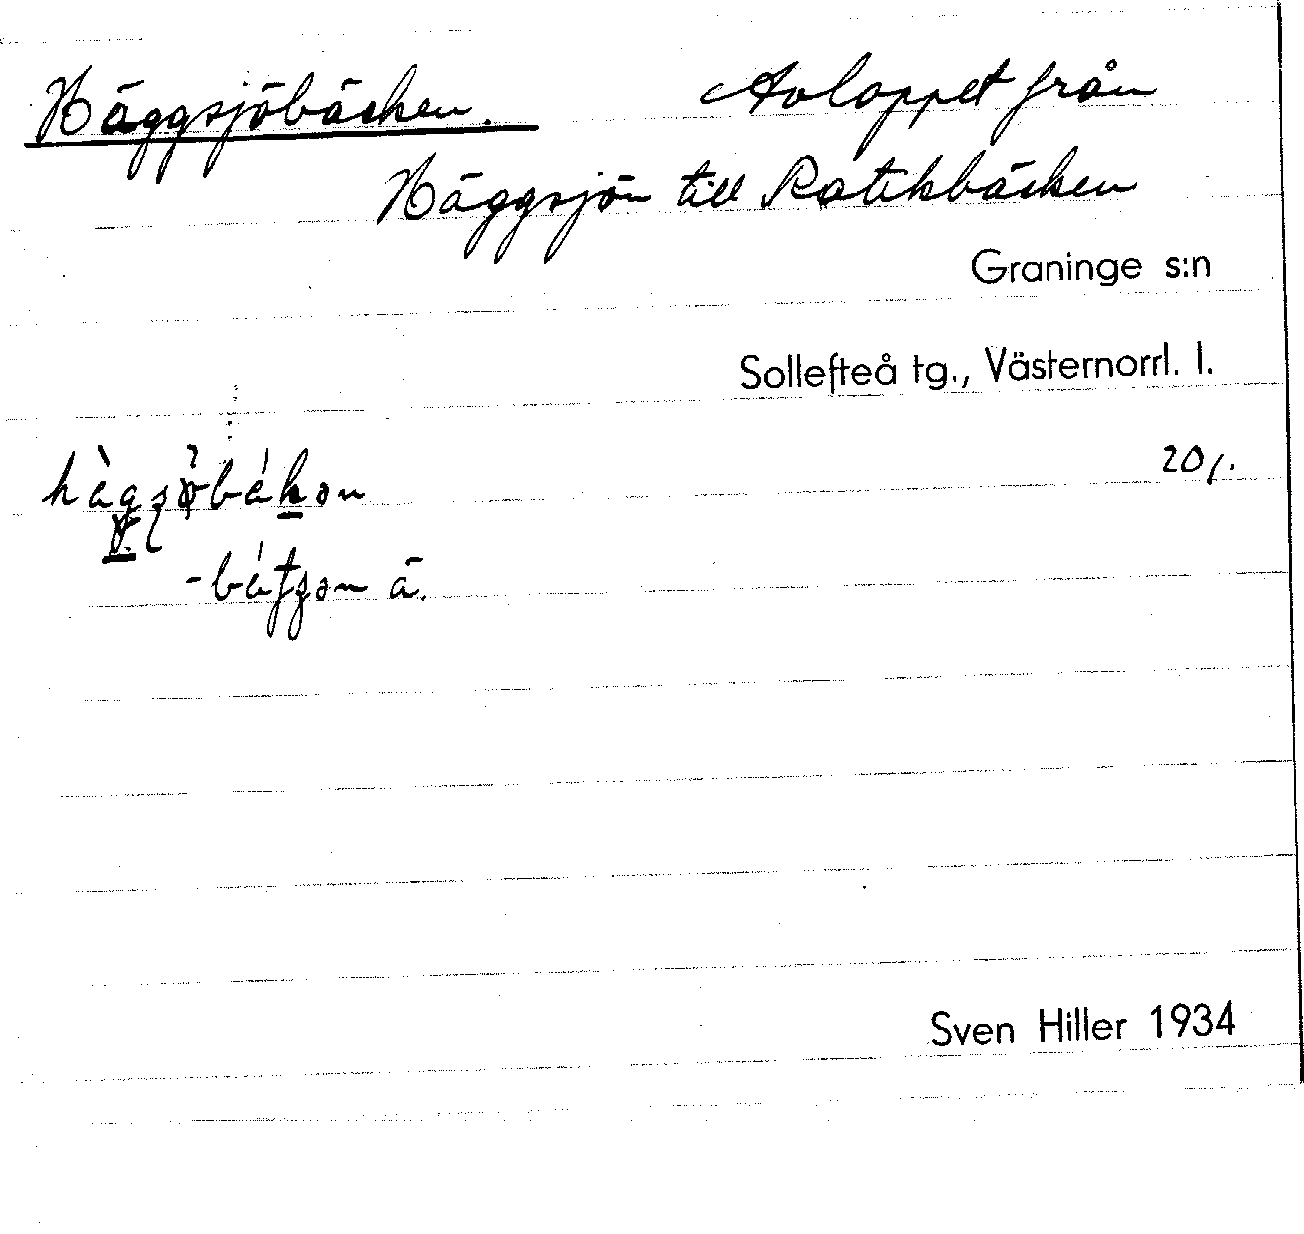 Häggsjöbäcken. Avloppet från
Häggsjön till Rotikbäcken
Graninge s:n
Sollefteå tg., Västernorrl. l.
20/.
-bátʃən ä.
Sven Hiller 1934